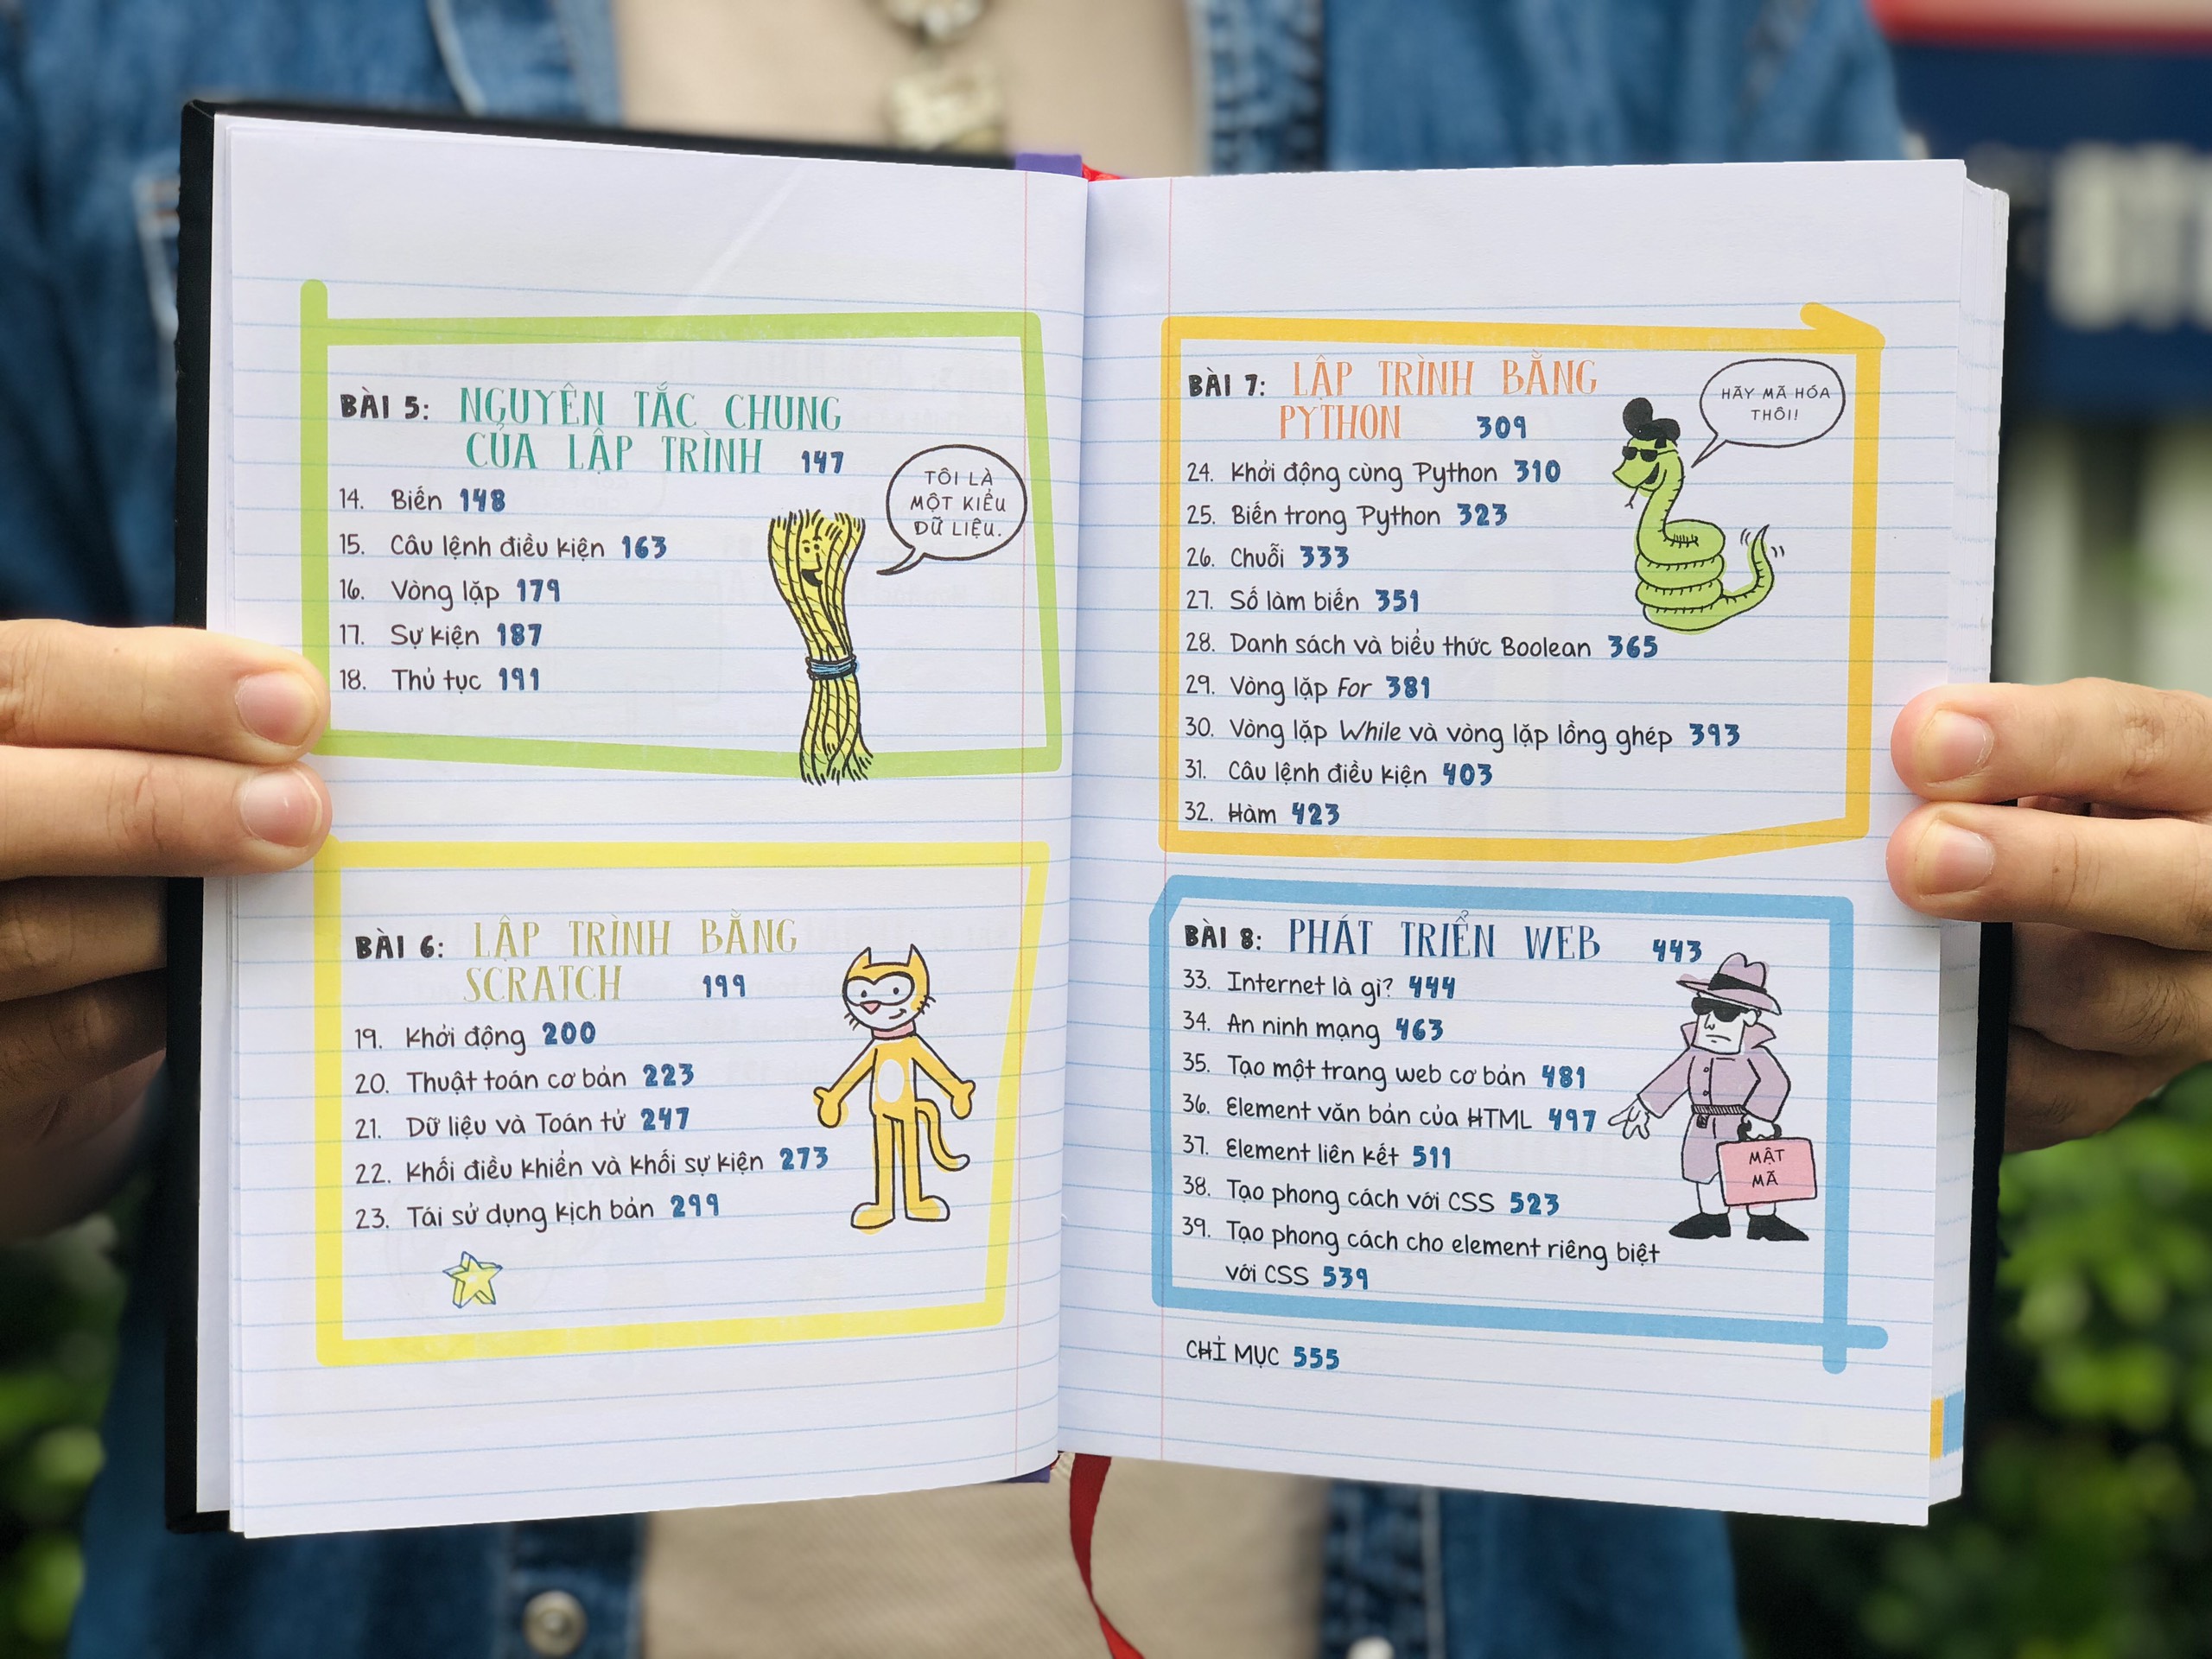 BÀI 5: NGUYÊN TẮC CHUNG
CỦA LẬP TRÌNH 147
14. Biến 148
15. Câu lệnh điều kiện 163
16. Vòng lặp 179
17. Sự kiện 187
18. Thủ tục 191
TÔI LÀ
MỘT KIỂU
DỮ LIỆU.
BÀI 6: LẬP TRÌNH BẰNG
SCRATCH 199
19. Khởi động 200
20. Thuật toán cơ bản 223
21. Dữ liệu và Toán tử 247
22. Khối điều khiển và khối sự kiện 273
23. Tái sử dụng kịch bản 299
BÀI 7: LẬP TRÌNH BẰNG
PYTHON 309
HÃY MÃ HÓA
THÔI!
24. Khởi động cùng Python 310
25. Biến trong Python 323
26. Chuỗi 333
27. Số làm biến 351
28. Danh sách và biểu thức Boolean 365
29. Vòng lặp For 381
30. Vòng lặp While và vòng lặp lồng ghép 393
31. Câu lệnh điều kiện 403
32. Hàm 423
BÀI 8: PHÁT TRIỂN WEB 443
33. Internet là gì? 444
34. An ninh mạng 463
35. Tạo một trang web cơ bản 481
36. Element văn bản của HTML 497
37. Element liên kết 511
38. Tạo phong cách với CSS 523
39. Tạo phong cách cho element riêng biệt
với CSS 539
MẬT
MÃ
CHỈ MỤC 555